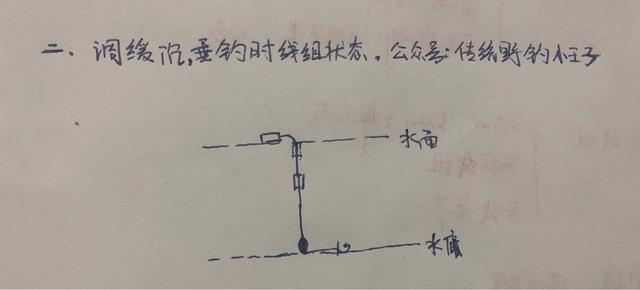 二、调缓沉,垂钓时线组状态。公众号:传统野钓小王子
水面
水底